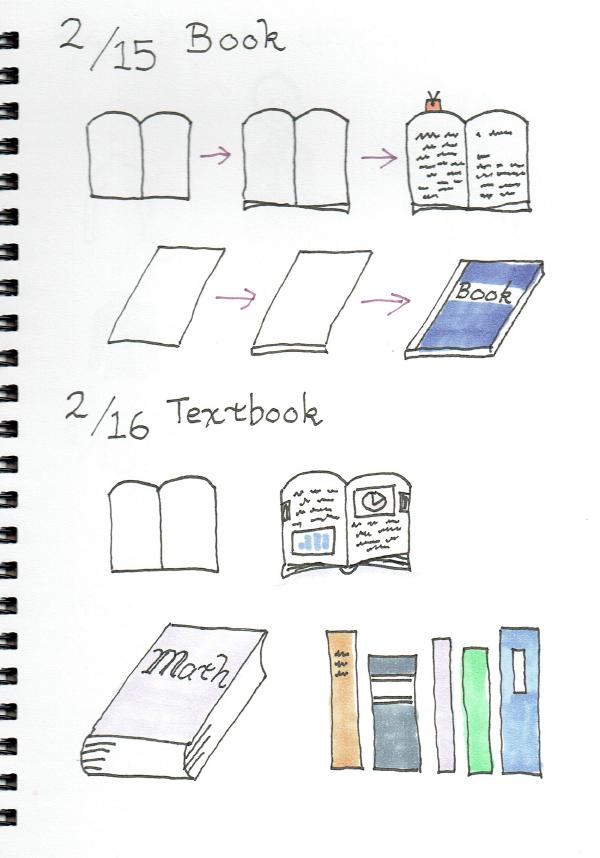 2/15 Book
Book
2/16 Textbook
Math